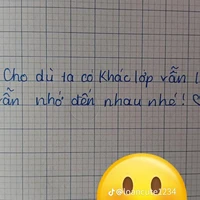 Cho dù ta có khác lớp vẫn
vẫn nhớ đến nhau nhé!